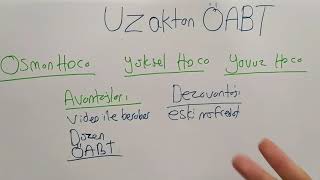 Uzaktan ÖABT
Osman Hoca Yüksel Hoca Yavuz Hoca
Avantajları Dezavantajı
video ile beraber eski müfredat
Düzen
ÖABT